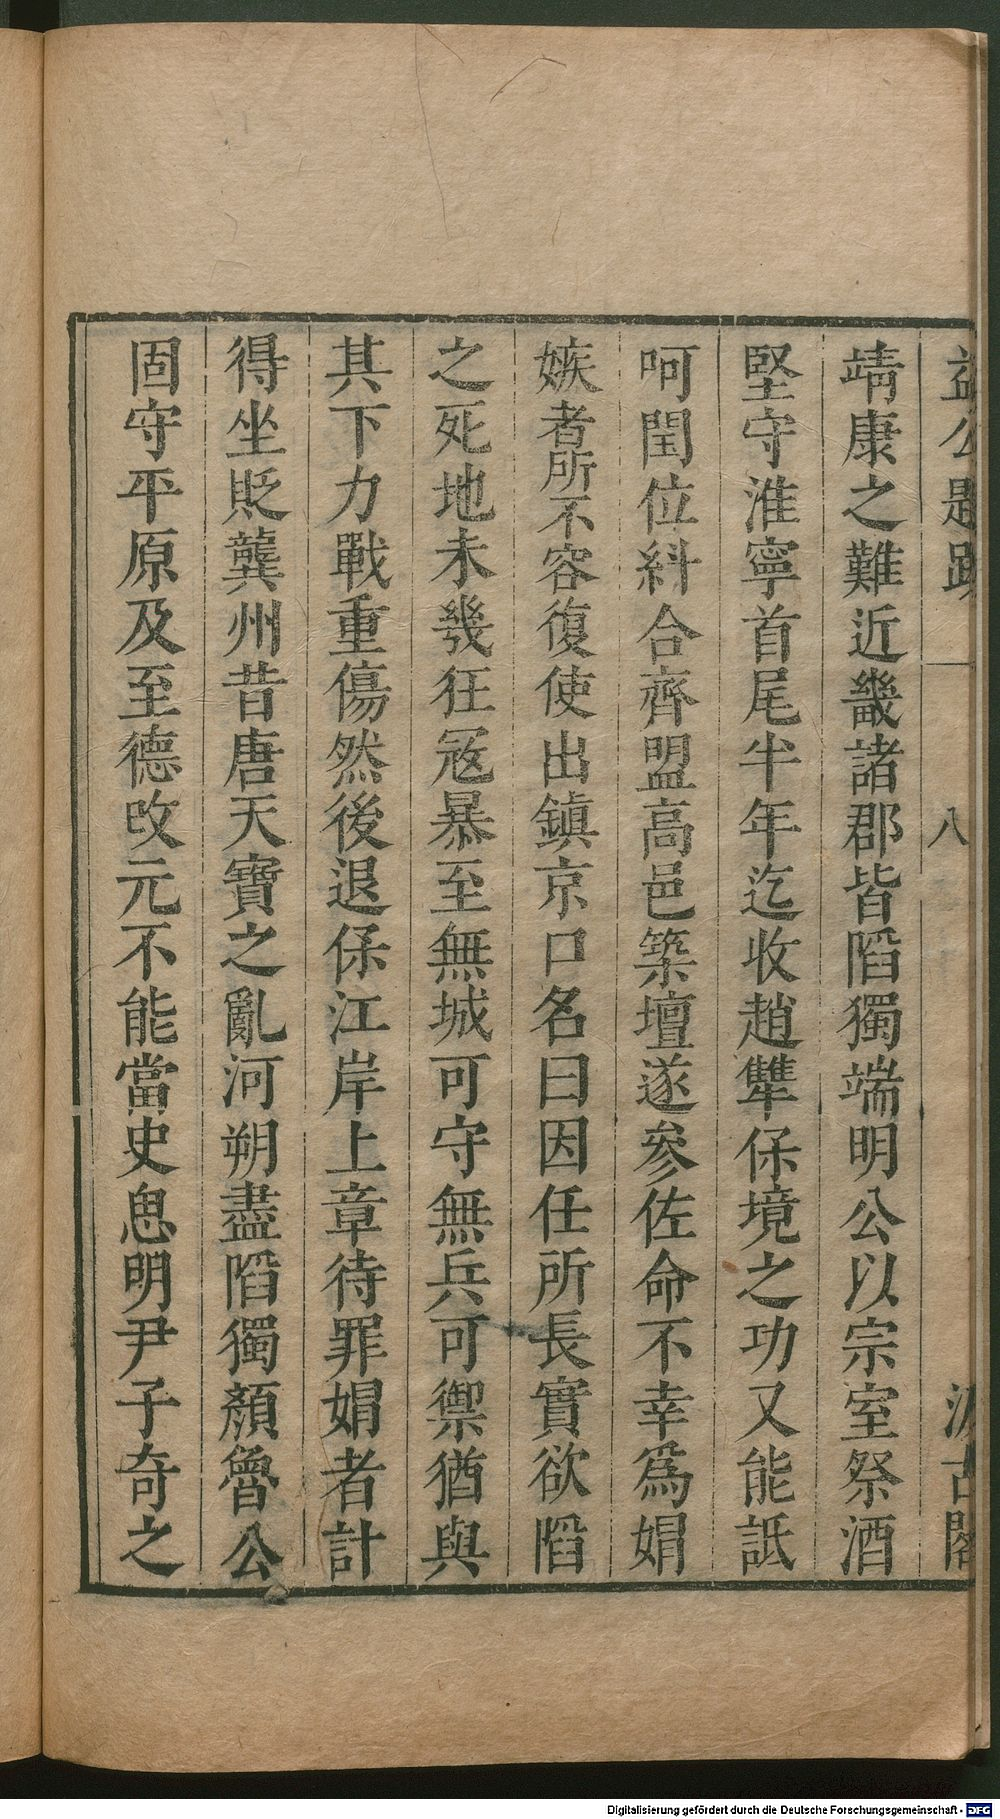 益公題跋
八
汲古閣
靖康之難近畿諸郡皆陷獨端明公以宗室祭酒
堅守淮寧首尾半年迄收趙犨保境之功又能詆
呵閏位糾合齊盟高邑築壇遂參佐命不幸爲娼
嫉者所不容復使出鎮京口名曰因任所長實欲陷
之死地未幾狂冦暴至無城可守無兵可禦猶與
其下力戰重傷然後退保江岸上章待罪娼者計
得坐貶龔州昔唐天寶之亂河朔盡陷獨顏魯公
固守平原及至德改元不能當史思明尹子奇之
Digitalisierung gefördert durch die Deutsche Forschungsgemeinschaft - DFG